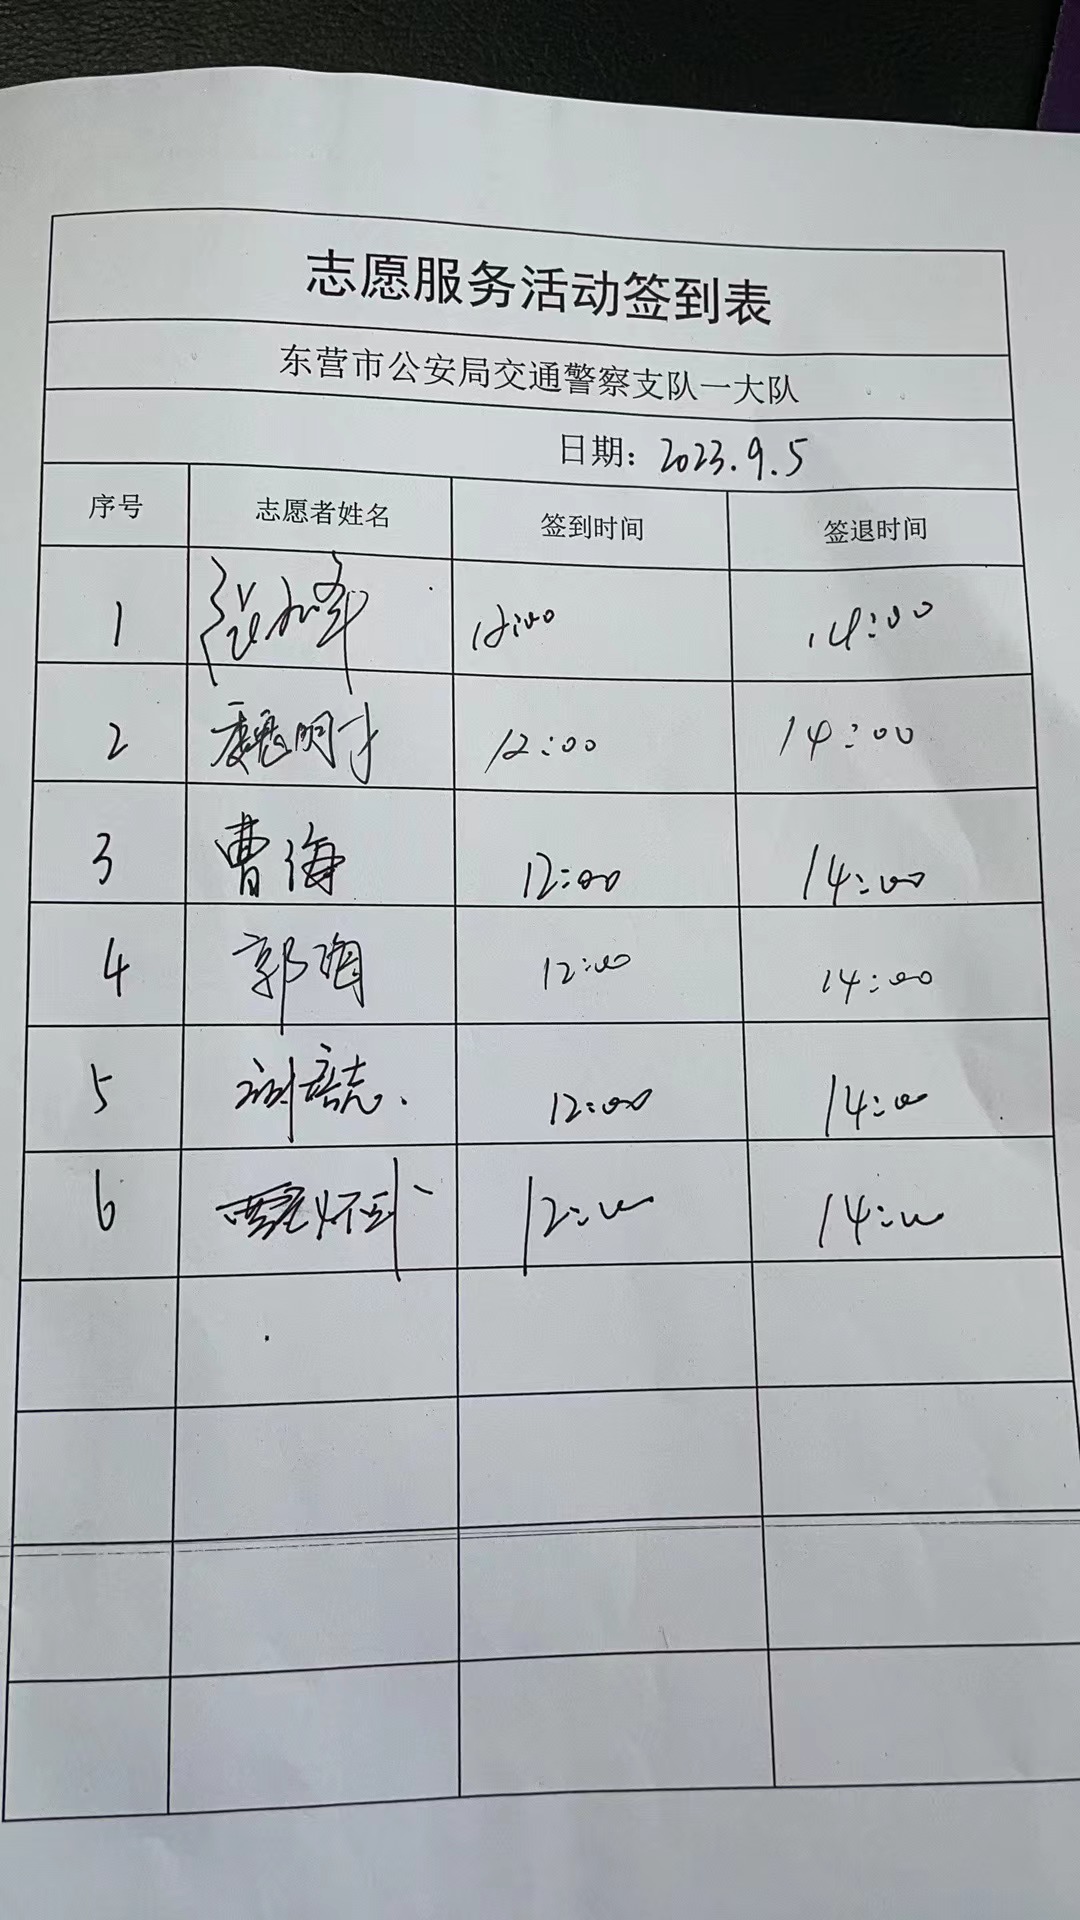 志愿服务活动签到表
东营市公安局交通警察支队一大队
日期: 2023.9.5
序号 志愿者姓名 签到时间 签退时间
1 12:00 14:00
2 魏明才 12:00 14:00
3 曹海 12:00 14:00
4 郭 12:00 14:00
5 12:00 14:00
6 12:00 14:00